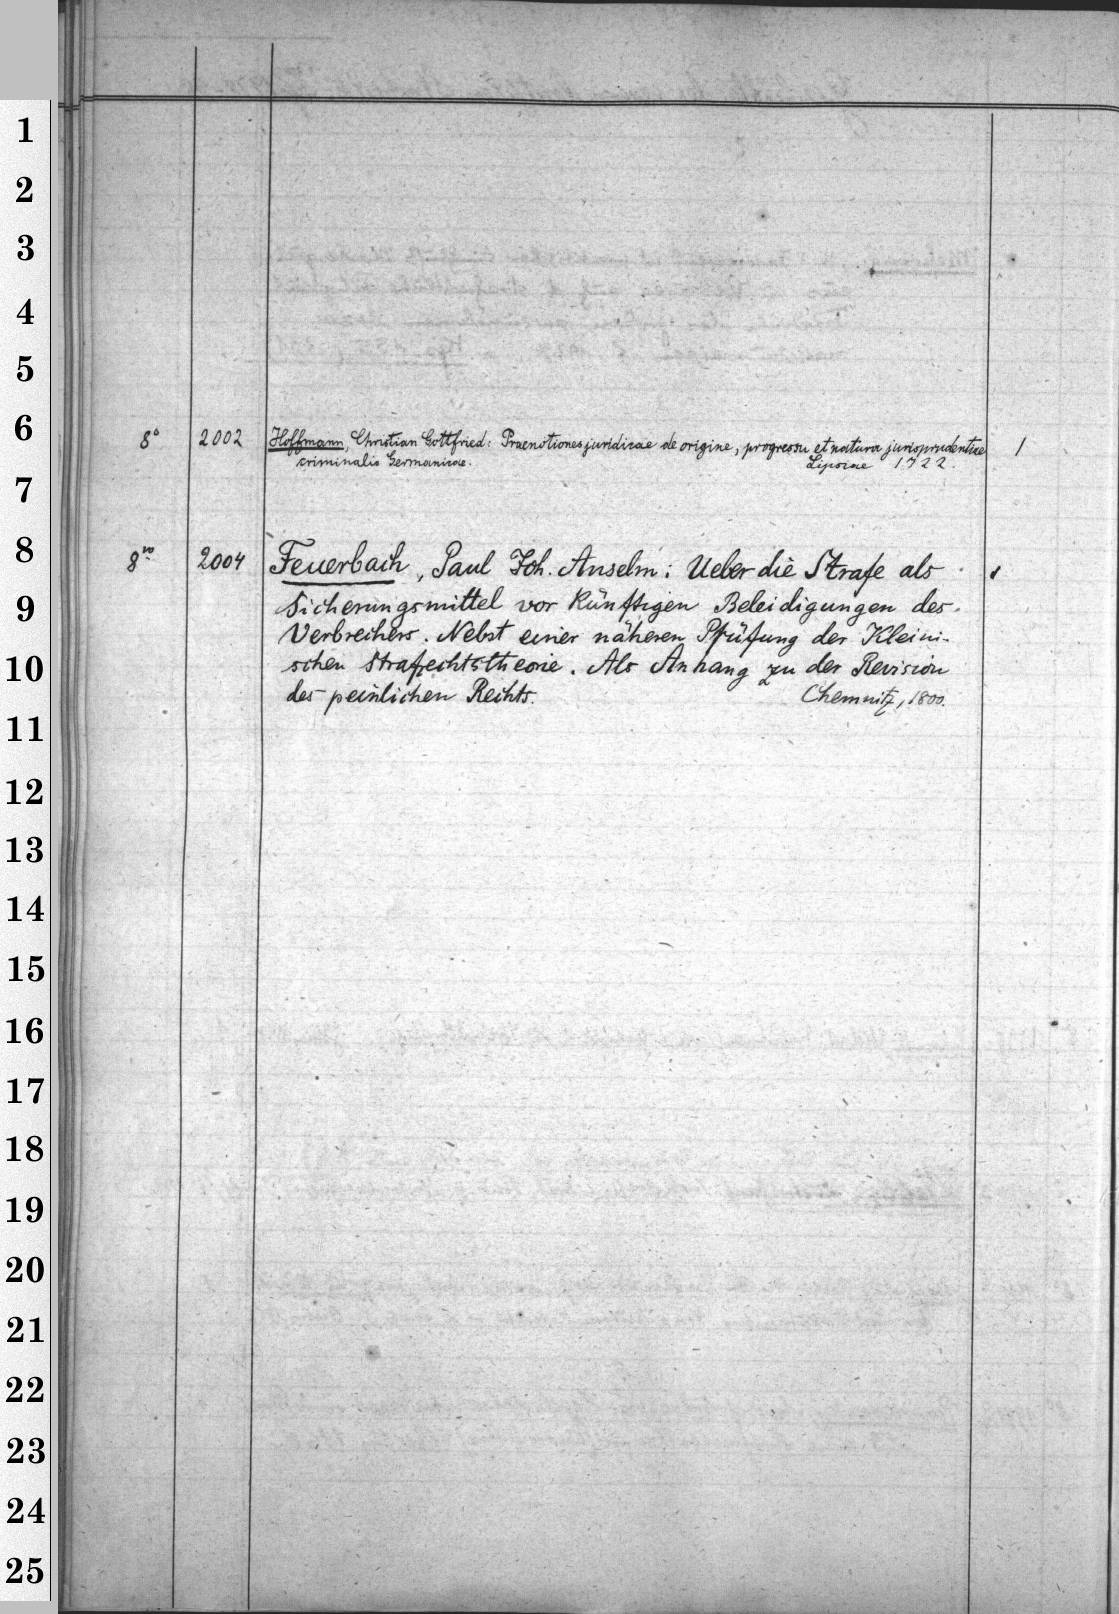 1
2
3
4
5
6
8° 2002 Hoffmann, Christian Gottfried: Praenotiones juridicae de origine, progressu et natura jurisprudentiae 1
criminalis Germanicae. Lipsiae 1722.
7
8
8vo 2004 Feuerbach, Paul Joh. Anselm: Ueber die Strafe als 1
9
Sicherungsmittel vor künftigen Beleidigungen des
Verbrechers. Nebst einer näheren Prüfung der Kleini-
10
schen Strafrechtstheorie. Als Anhang zu der Revision
des peinlichen Rechts. Chemnitz, 1800.
11
12
13
14
15
16
17
18
19
20
21
22
23
24
25